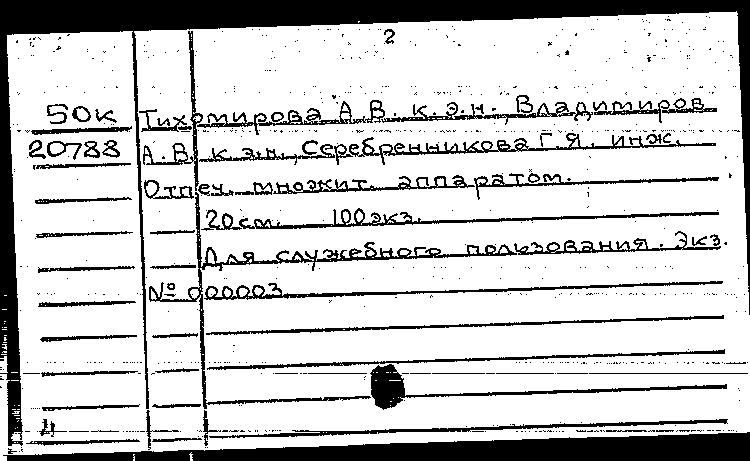 2
50к Тихомирова А.В. к.э.н., Владимиров
20788 А.В. к.э.н., Серебренникова Г.Я. инж.
Отпеч. множит. аппаратом.
20см. 100экз.
Для служебного пользования. Экз.
№ 000003